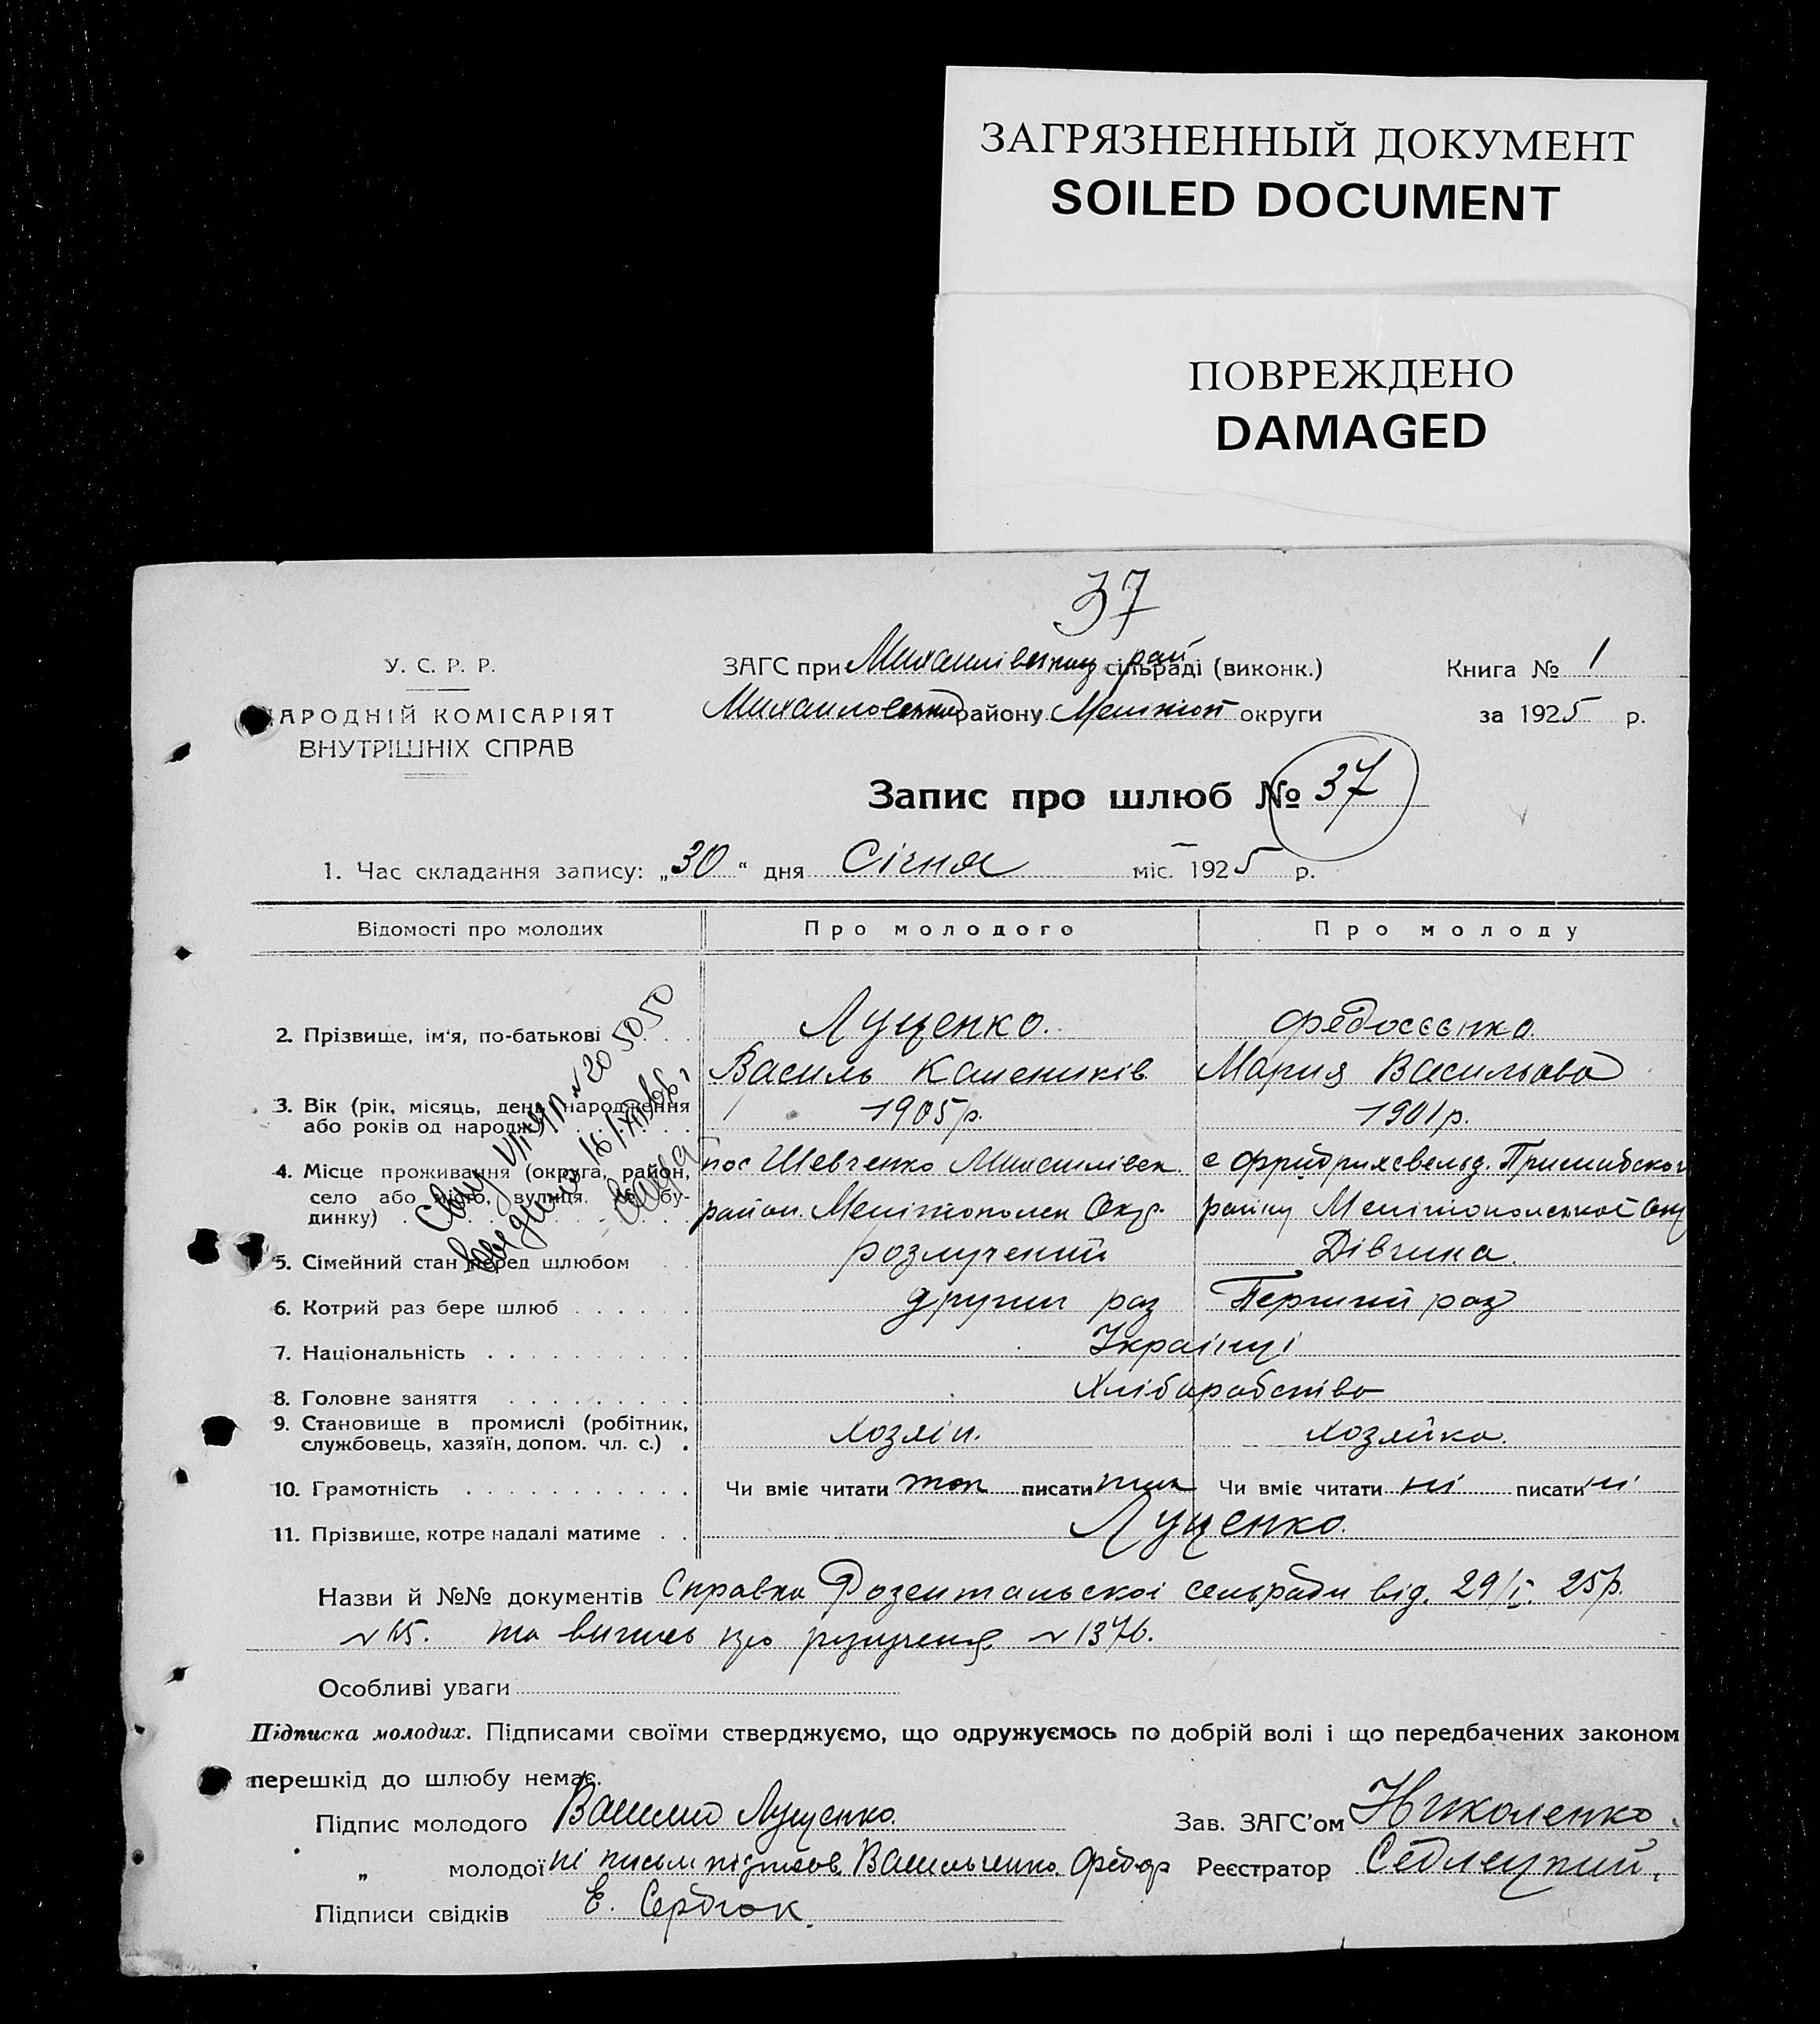 ЗАГРЯЗНЕННЫЙ ДОКУМЕНТ
SOILED DOCUMENT
ПОВРЕЖДЕНО
DAMAGED
37
У. С. Р. Р.
АРОДНІЙ КОМІСАРІЯТ
ВНУТРІШНІХ СПРАВ
ЗАГС при Михайлівському рай сільраді (виконк.)
Книга № 1
району Меліт округи
за 1925 р.
Запис про шлюб № 37
1. Час складання запису: „30“ дня Січня міс. 1925 р.
Відомості про молодих
Про молодого
Про молоду
2. Прізвище, ім'я, по-батькові
Луценко.
Федосєєнко.
Василь
Мария Васильова
3. Вік (рік, місяць, день народження або років од народж.)
1905 р.
1901 р.
4. Місце проживання (округа, район, село або місто, вулиця, № будинку)
пос Шевченко Михайлівск.
район. Мелітополск Окр.
5. Сімейний стан перед шлюбом
розлучений
Дівчина.
6. Котрий раз бере шлюб
другий раз
Перший раз
7. Національність
Українці
8. Головне заняття
Хліборобство
9. Становище в промислі (робітник, службовець, хазяїн, допом. чл. с.)
Хозяін.
Хозяйка.
10. Грамотність
Чи вміє читати так писати так
Чи вміє читати ні писати ні
11. Прізвище, котре надалі матиме
Луценко.
Назви й №№ документів Справка Розентальскоі сельради від. 29/I. 25р.
та випись про розлучення № 1376.
Особливі уваги
Підписка молодих. Підписами своїми стверджуємо, що одружуємось по добрій волі і що передбачених законом
перешкід до шлюбу немає.
Підпис молодого Василий Луценко.
Зав. ЗАГС'ом Николенко
„ молодої Васильченко Федор
Реєстратор Седлецкий.
Підписи свідків Е. Сердюк.